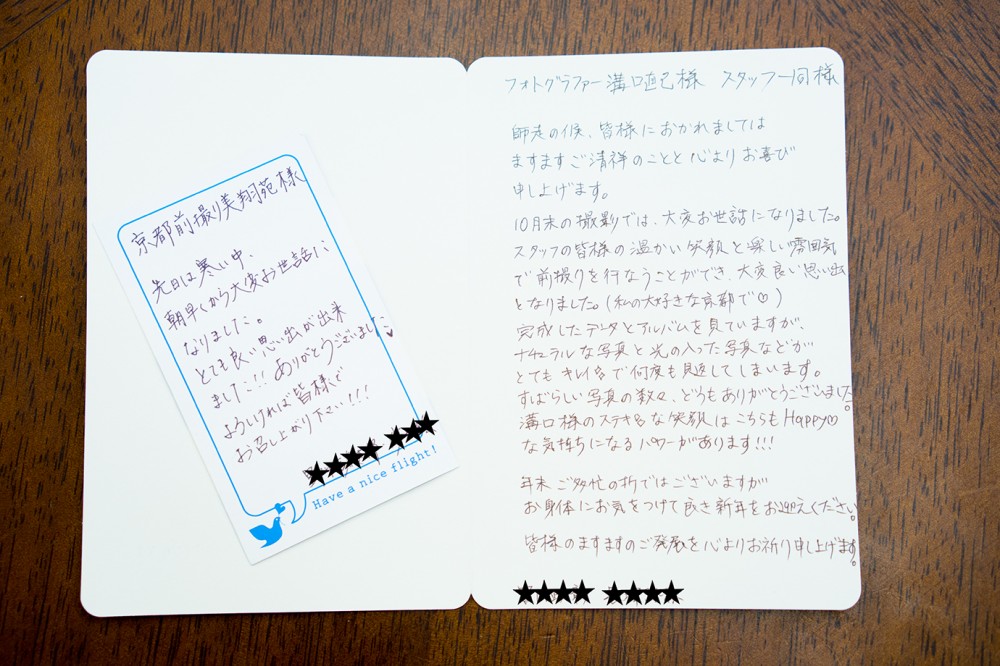 京都前撮り美翔苑様
先日は寒い中、
朝早くから大変お世話に
なりました。
とても良い思い出が出来
ました!! ありがとうございました♥
よろしければ皆様で
お召し上がり下さい!!!
★★★★ ★★★
Have a nice flight!
フォトグラファー溝口直己様 スタッフ一同様
師走の候、皆様におかれましては
ますますご清祥のことと心よりお喜び
申し上げます。
10月末の撮影では、大変お世話になりました。
スタッフの皆様の温かい笑顔と楽しい雰囲気
で前撮りを行なうことができ、大変良い思い出
となりました。(私の大好きな京都で♡)
完成したデータとアルバムを見ていますが、
ナチュラルな写真と光の入った写真などが
とてもキレイで何度も見返してしまいます。
すばらしい写真の数々、どうもありがとうございました。
溝口様のステキな笑顔はこちらもHappy♡
な気持ちになるパワーがあります!!!
年末ご多忙の折ではございますが
お身体にお気をつけて良き新年をお迎えください。
皆様のますますのご発展を心よりお祈り申し上げます。
★★★★ ★★★★